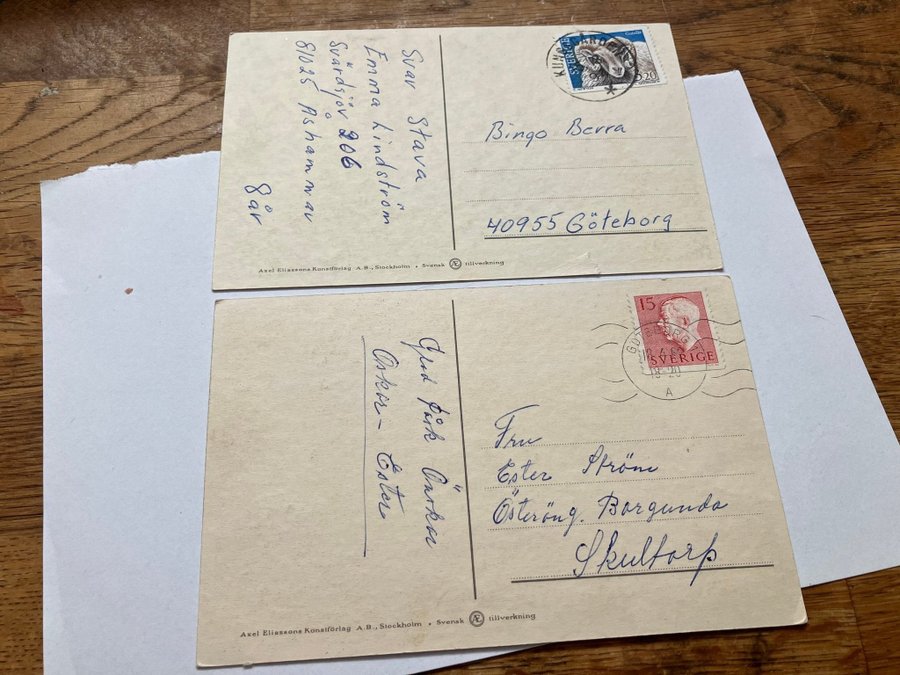 Svar Stava
Emma Lindström
Svärdsjöv 206
81025 Åshammar
8 år
SVERIGE
Bingo Berra
40955 Göteborg
Axel Eliassons Konstförlag A.B., Stockholm • Svensk Æ tillverkning
Glad Påsk Önskar
Oskar - Ester
15
SVERIGE
GÖTEBORG
A
Fru
Ester Ström
Österäng. Borgunda
Skultorp
Axel Eliassons Konstförlag A.B., Stockholm • Svensk Æ tillverkning